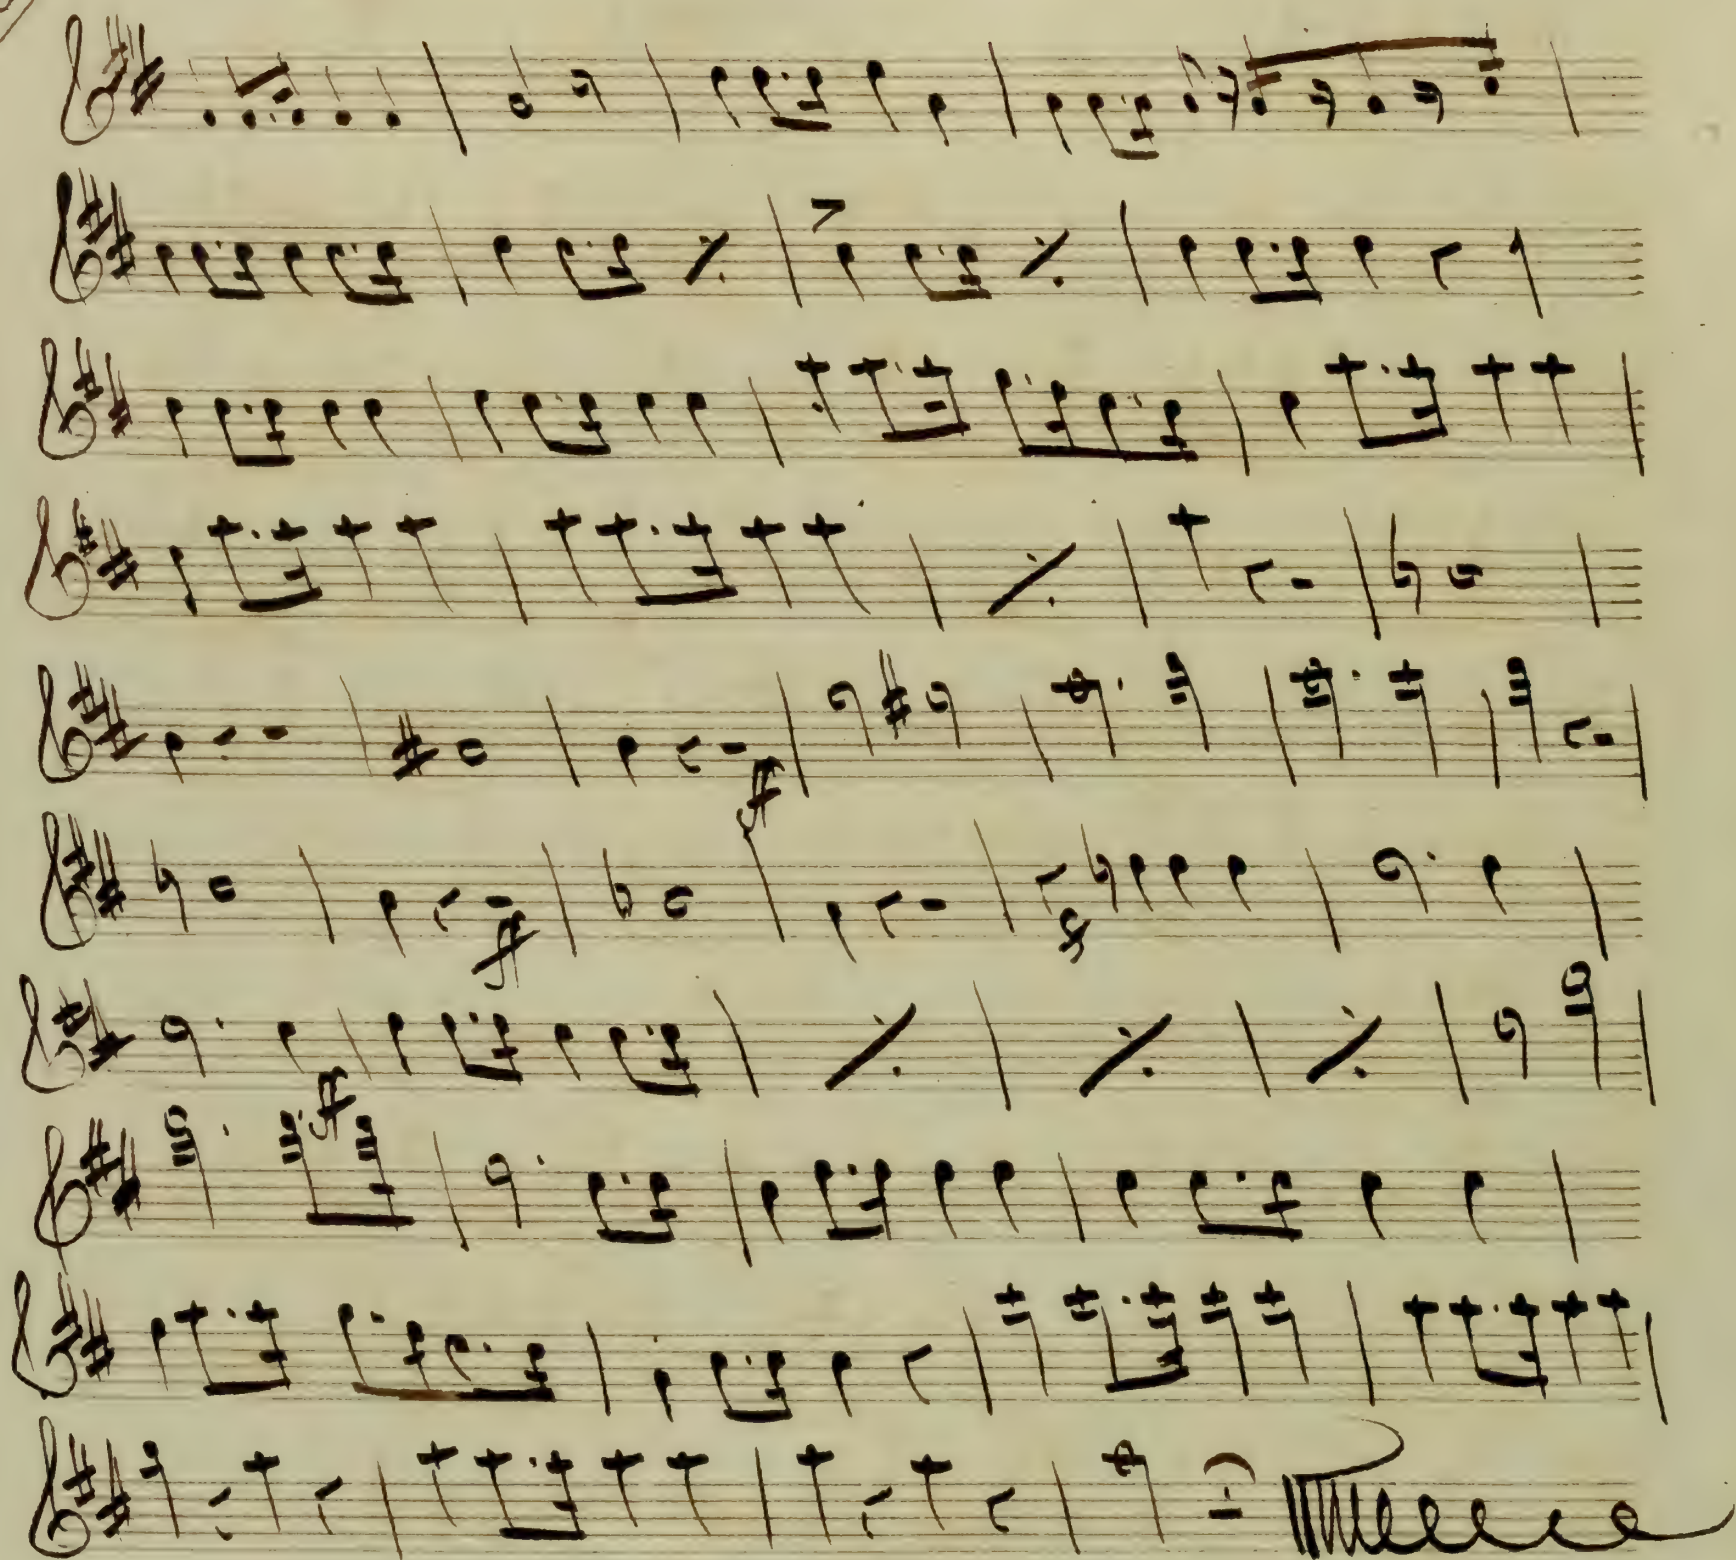 ff
ff
f
ff